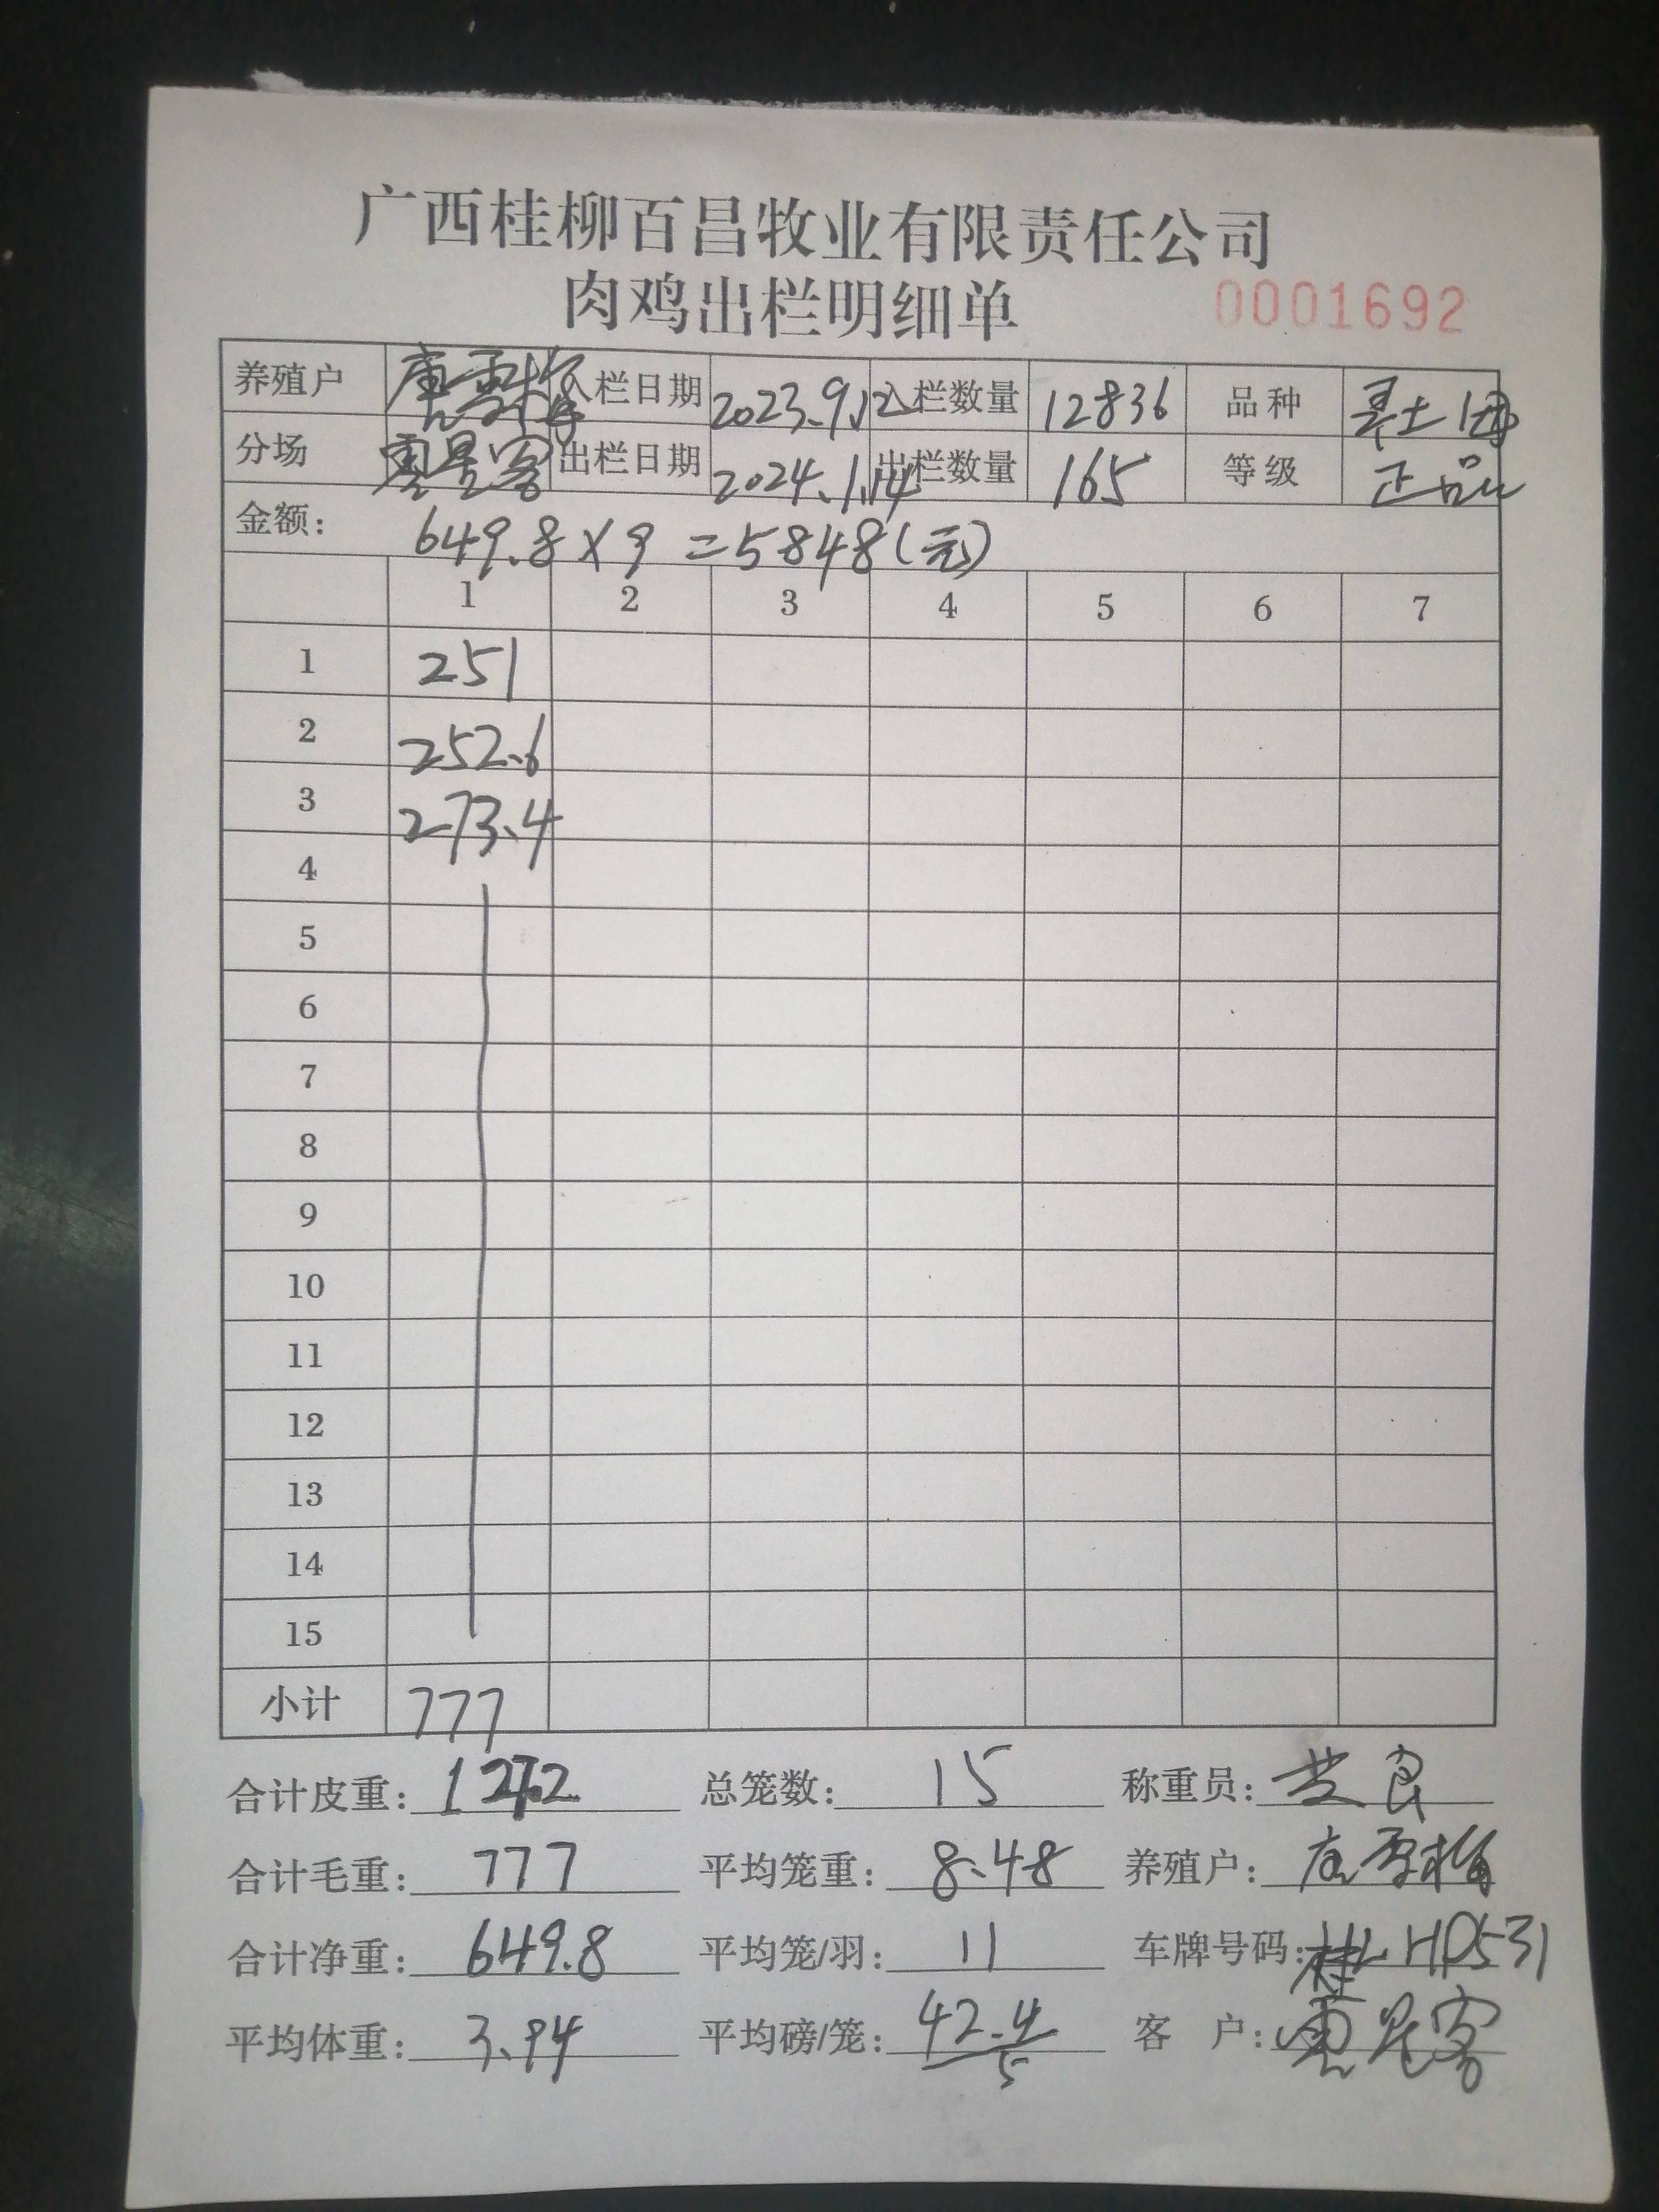 广西桂柳百昌牧业有限责任公司
肉鸡出栏明细单 0001692
养殖户 唐 入栏日期 2023.9.12 入栏数量 12836 品种 土
分场 出栏日期 2024.1.14 出栏数量 165 等级 正品
金额： 649.8×9=5848(元)
1 2 3 4 5 6 7
1 251
2 252.6
3 273.4
4
5
6
7
8
9
10
11
12
13
14
15
小计 777
合计皮重： 127.2 总笼数： 15 称重员： 良
合计毛重： 777 平均笼重： 8.48 养殖户：
合计净重： 649.8 平均笼/羽： 11 车牌号码： 桂 HP531
平均体重： 3.94 平均磅/笼： 42.4/5 客 户： 客